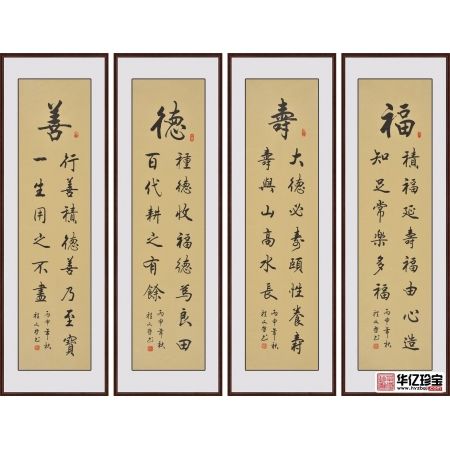 福
積福延壽福由心造
知足常樂多福
丙申年秋
壽
大德必壽頤性養壽
壽與山高水長
丙申年秋
德
種德收福德為良田
百代耕之有餘
丙申年秋
善
行善積德善乃至寶
一生用之不盡
丙申年秋
华亿珍宝